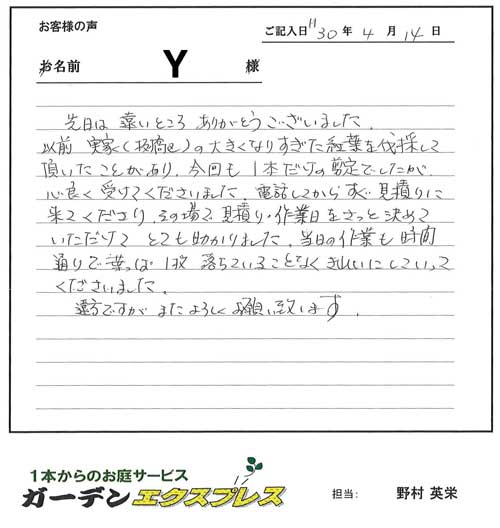 お客様の声
ご記入日 H30年 4月 14日
お名前 Y 様
先日は 遠いところ ありがとうございました。
以前 実家(板橋区)の大きくなりすぎた紅葉を伐採して
頂いたことがあり、今回も 1本だけの剪定でしたが、
心良く受けてくださいました。電話してからすぐ 見積りに
来てくださり、その場で 見積り・作業日をさっと決めて
いただけて とても助かりました。当日の作業も 時間
通りで 葉っぱ 1枚 落ちていることなく きれいにしていって
くださいました。
遠方ですが またよろしくお願い致します。
1本からのお庭サービス
ガーデンエクスプレス
担当: 野村 英栄